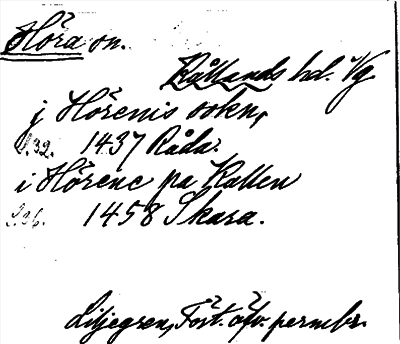 Höra sn.
Kållands hd. Vg.
j Hörenis sokn,
1437 Råda.
i Hörene pa Kallen
1458 Skara.
Liljegren, Fört. öfv. permbr.